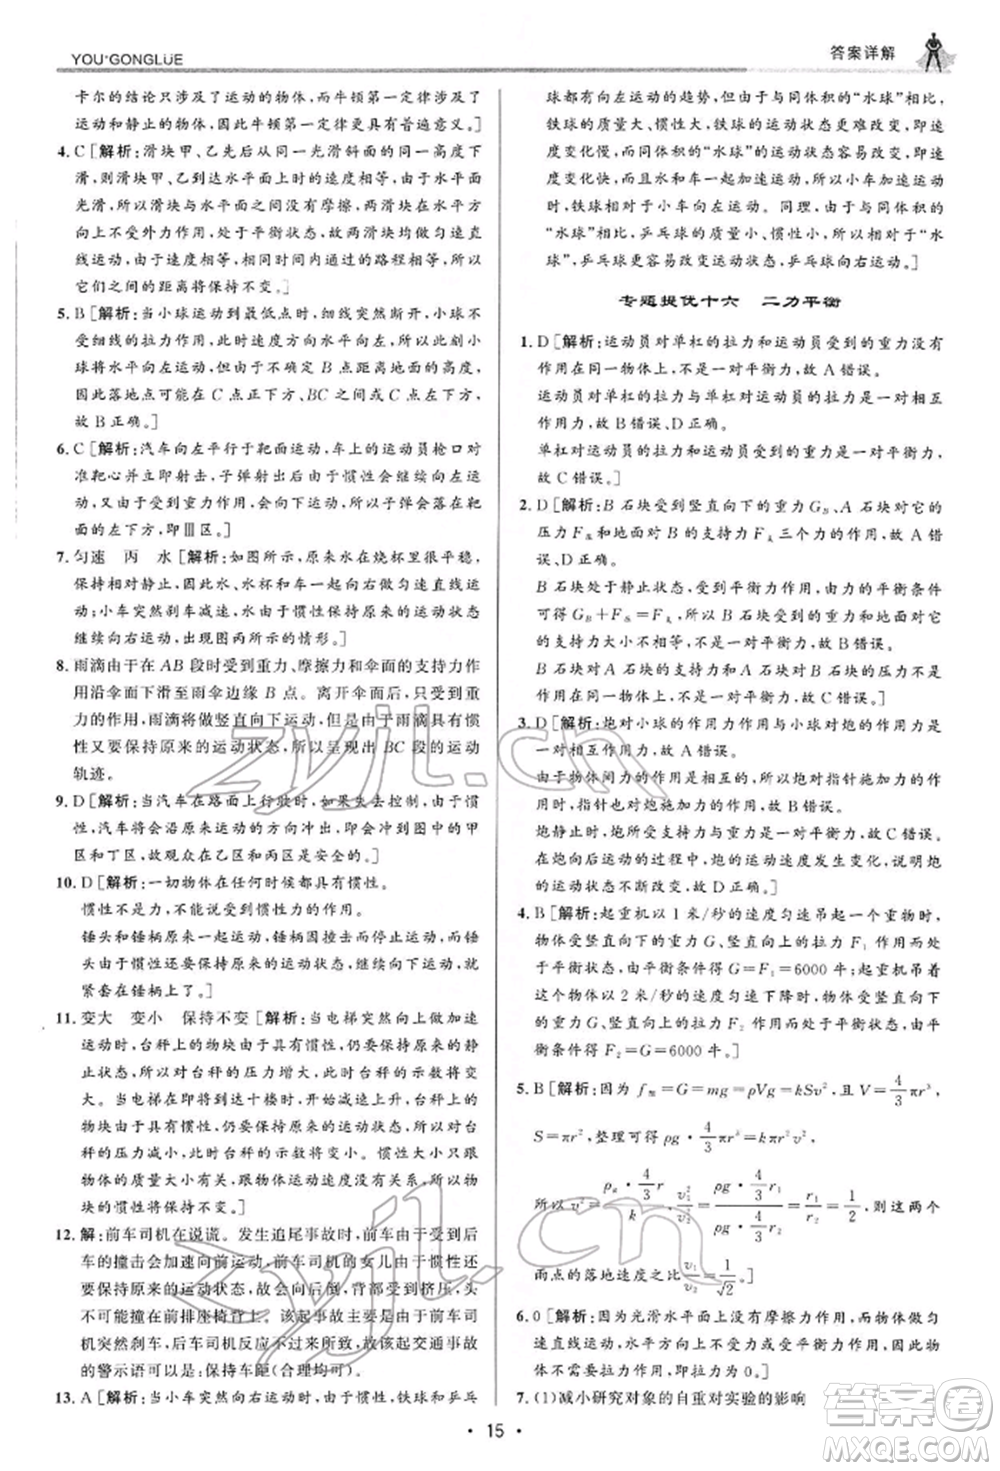 YOU·GONGLÜE
答案详解
卡尔的结论只涉及了运动的物体,而牛顿第一定律涉及了
运动和静止的物体,因此牛顿第一定律更具有普遍意义。]
4. C [解析:滑块甲、乙先后从同一光滑斜面的同一高度滑
下,滑块甲、乙到达水平面上时的速度相等,水平桌面
光滑,所以滑块与水平面没有摩擦,两滑块在水平方向
上不受外力作用,处于平衡状态,故两滑块均做匀速直
线运动,由于速度相等,相同时间通过的路程相等,所以
它们之间的距离将保持不变。]
5. B [解析:当小球运动到最低点时,细线突然断开,小球不
受细线的拉力作用,此时速度方向水平向左,由于惯性小
球将水平向左飞出,但由于不确定 B 点距离地面的高度,
因此落地点可能在 C 点正下方、C 点左下方或 C 点右下方,
故 B 正确。]
6. C [解析:汽车向左平行于靶面运动,车上的运动员枪口对
准靶心并立即射击,子弹射出后由于惯性会继续向左运
动,同时由于受到重力作用,会向下运动,子弹会落在靶
面的左下方,即Ⅲ区。]
7. 匀速 丙 水 [解析:如图所示,原来水在烧杯里很平稳,
保持相对静止,因此水、水杯和车一起向右做匀速直线运
动;小车突然刹车减速,水由于惯性保持原来的运动状态
继续向右运动,出现图丙所示的情形。]
8. 雨滴由于在 AB 段时受到重力、摩擦力和伞面的支持力作
用沿伞面下滑至雨伞边缘 B 点。离开伞面后,只受到重
力的作用,雨滴将做竖直向下运动,但由于雨滴具有惯
性又要保持原来的运动状态,所以呈现出 BC 段的运动
轨迹。
9. D [解析:当汽车在路面上行驶时,如果失去控制,由于惯
性,汽车将会沿原来运动的方向冲出,会冲向图中的甲
区和丁区,故人站在乙区和丙区是安全的。]
10. D [解析:一切物体在任何时候都具有惯性。
惯性不是力,不能说受到惯性力的作用。
锤头和锤柄原来一起运动,锤柄因撞击而突然停止,锤
头由于惯性还要保持原来的运动状态,继续向下运动,就
紧套在锤柄上了。]
11. 变大 变小 保持不变 [解析:当电梯突然向上做加速
运动时,台秤上的物块由于具有惯性,仍要保持原来的静
止状态,故物块对台秤的压力增大,所以台秤的示数变
大。当电梯上升到达十楼时,台秤上的物块由于具有惯
性,仍要保持原来的运动状态,故物块对台秤的压力减
小,所以台秤的示数将变小。惯性大小只跟物体的质量
有关,跟物体的速度大小没有关系,台秤上的物块质量不
变,物块的惯性将保持不变。]
12. 解:前车司机在说谎。发生追尾事故时,前车受到后
车的撞击会加速向前运动,前车司机的女儿由于惯性要
保持原来的运动状态,相对于车会向后运动,会挤压后
背,不可能撞到前排座椅背上。该起事故主要是前车司
机突然刹车,后车司机反应不及时所致,故起交通事故
的警示语可以是:保持车距(合理均可)。
13. A [解析:当小车突然向右运动时,由于惯性,铁球和乒乓
球都有向左运动的趋势,但由于与同体积的“水球”相比,
铁球的质量大、惯性大,铁球的运动状态更难改变,即速
度变化慢,而同体积的“水球”的运动状态容易改变,即速
度变化快,而且水和车一起加速运动,所以小车向右运动
时,铁球相对于小车向左运动。同理,由于与同体积的
“水球”相比,乒乓球的质量小、惯性小,乒乓球相对于“水
球”,乒乓球更易改变运动状态,乒乓球向右运动。]
专题提优十六 二力平衡
1. D [解析:运动员对单杠的拉力和运动员受到的重力没有
作用在同一物体上,不是一对平衡力,故 A 错误。
运动员对单杠的拉力与单杠对运动员的拉力是一对相互
作用力,故 B 错误、D 正确。
单杠对运动员的拉力和运动员受到的重力不相等,故不
是一对平衡力,故 C 错误。]
2. D [解析:B 石块受到竖直向下的重力 G_B、A 石块对它的
压力 F_压和地面对 B 的支持力 F_支三个力的作用,故 C 错
误,D 正确。
B 石块处于静止状态,受到平衡力作用,由力的平衡条件
可得 G_B + F_压 = F_支,所以 B 石块受到的重力和地面对它
的支持力大小不相等,不是一对平衡力,故 B 错误。
B 石块对 A 石块的支持力与 B 石块受到的重力没有作
用在同一物体上,不是一对平衡力,故 A 错误。]
3. D [解析:炮对小球的作用力作用与小球对炮的作用力是
一对相互作用力,故 A 错误。
由于物体间力的作用是相互的,当炮对指针施加作用力
时,指针也对炮施加力的作用,故 B 错误。
炮静止时,炮所受支持力与重力是一对平衡力,故 C 错误。
在炮向后运动的过程中,运动速度发生变化,说明炮的
运动状态不断改变,故 D 正确。]
4. B [解析:起重机以 1 米/秒的速度匀速吊起一个重物时,
物体受竖直向下的重力 G、竖直向上的拉力 F₁ 的作用而处
于平衡状态,由平衡条件得 G = F₁ = 6000 牛;
该物体以 2 米/秒的速度匀速下降时,物体受竖直向
下的重力 G、竖直向上的拉力 F₂ 作用而处于平衡状态,由平
衡条件得 F₂ = G = 6000 牛。]
5. B [解析:因为 f_型 = G = mg = ρVg = kSv², 且 V = 4/3 πr³,
S = πr², 整理可得 ρg · 4/3 πr³ = kπr²v²,
v₁²/v₂² = (ρg · 4/3 r₁)/(ρg · 4/3 r₂) = r₁/r₂ = 1/2, 则这两个
雨点的落地速度之比为 v₁/v₂ = 1/√2。]
6. 0 [解析:因为光滑水平面上没有摩擦力作用,而物体做匀
速直线运动,水平方向上不受力或受平衡力,所以物体一
定不受拉力作用,即拉力为 0。]
7. (1)减小研究对象的自重对实验的影响
• 15 •
zyjl.cn
zyjl.cn
答案圈
MXQE.COM